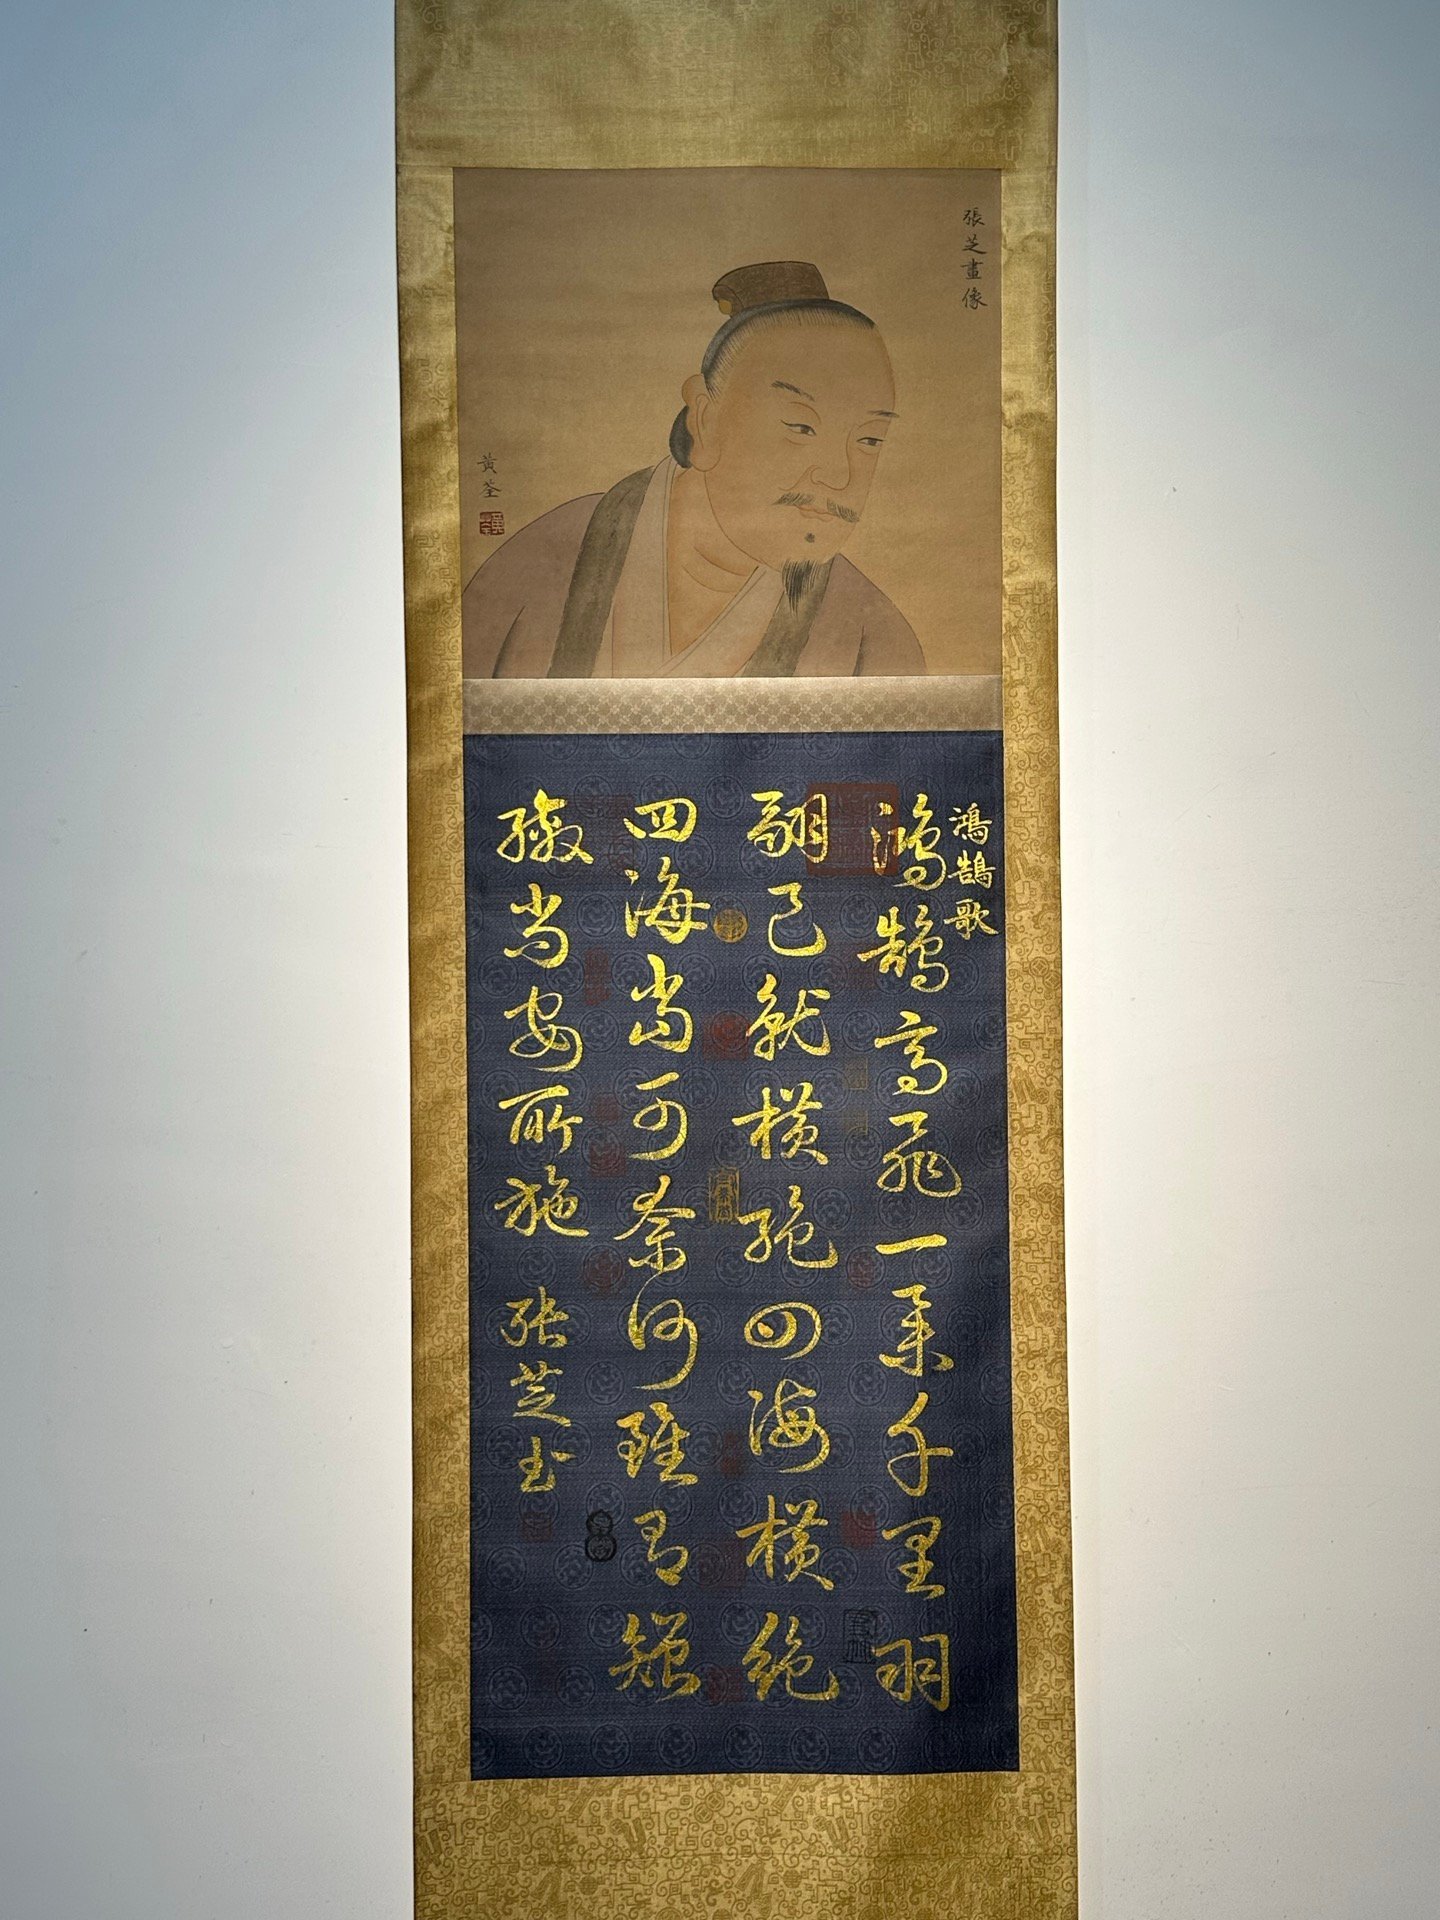 張芝畫像
黃荃
鴻鵠歌
鴻鵠高飛一舉千里羽
翮已就橫絕四海橫絕
四海當可奈何雖有矰
繳尚安所施
張芝書